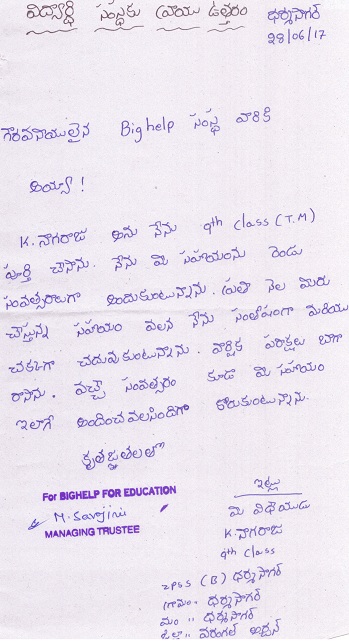 విద్యార్థి సంస్థకు వ్రాయు ఉత్తరం
ధర్మసాగర్
28/06/17
గౌరవనీయులైన Bighelp సంస్థ వారికి
అయ్యా!
K. నాగరాజు అను నేను 9th class (T.M)
పూర్తి చేసాను. నేను మీ సహాయంను రెండు
సంవత్సరాలుగా అందుకుంటున్నాను. ప్రతి నెల మీరు
చేస్తున్న సహాయం వలన నేను సంతోషంగా మరియు
చక్కగా చదువుకుంటున్నాను. వార్షిక పరీక్షలు బాగా
రాసాను. వచ్చే సంవత్సరం కూడా మీ సహాయం
ఇలాగే అందించవలసిందిగా కోరుకుంటున్నాను.
కృతజ్ఞతలతో
For BIGHELP FOR EDUCATION
M. Sarojini
MANAGING TRUSTEE
ఇట్లు
మీ విధేయుడు
K. నాగరాజు
9th class
ZPSS (B) ధర్మసాగర్
గ్రామం. ధర్మసాగర్
మం " ధర్మసాగర్
జిల్లా " వరంగల్ అర్బన్